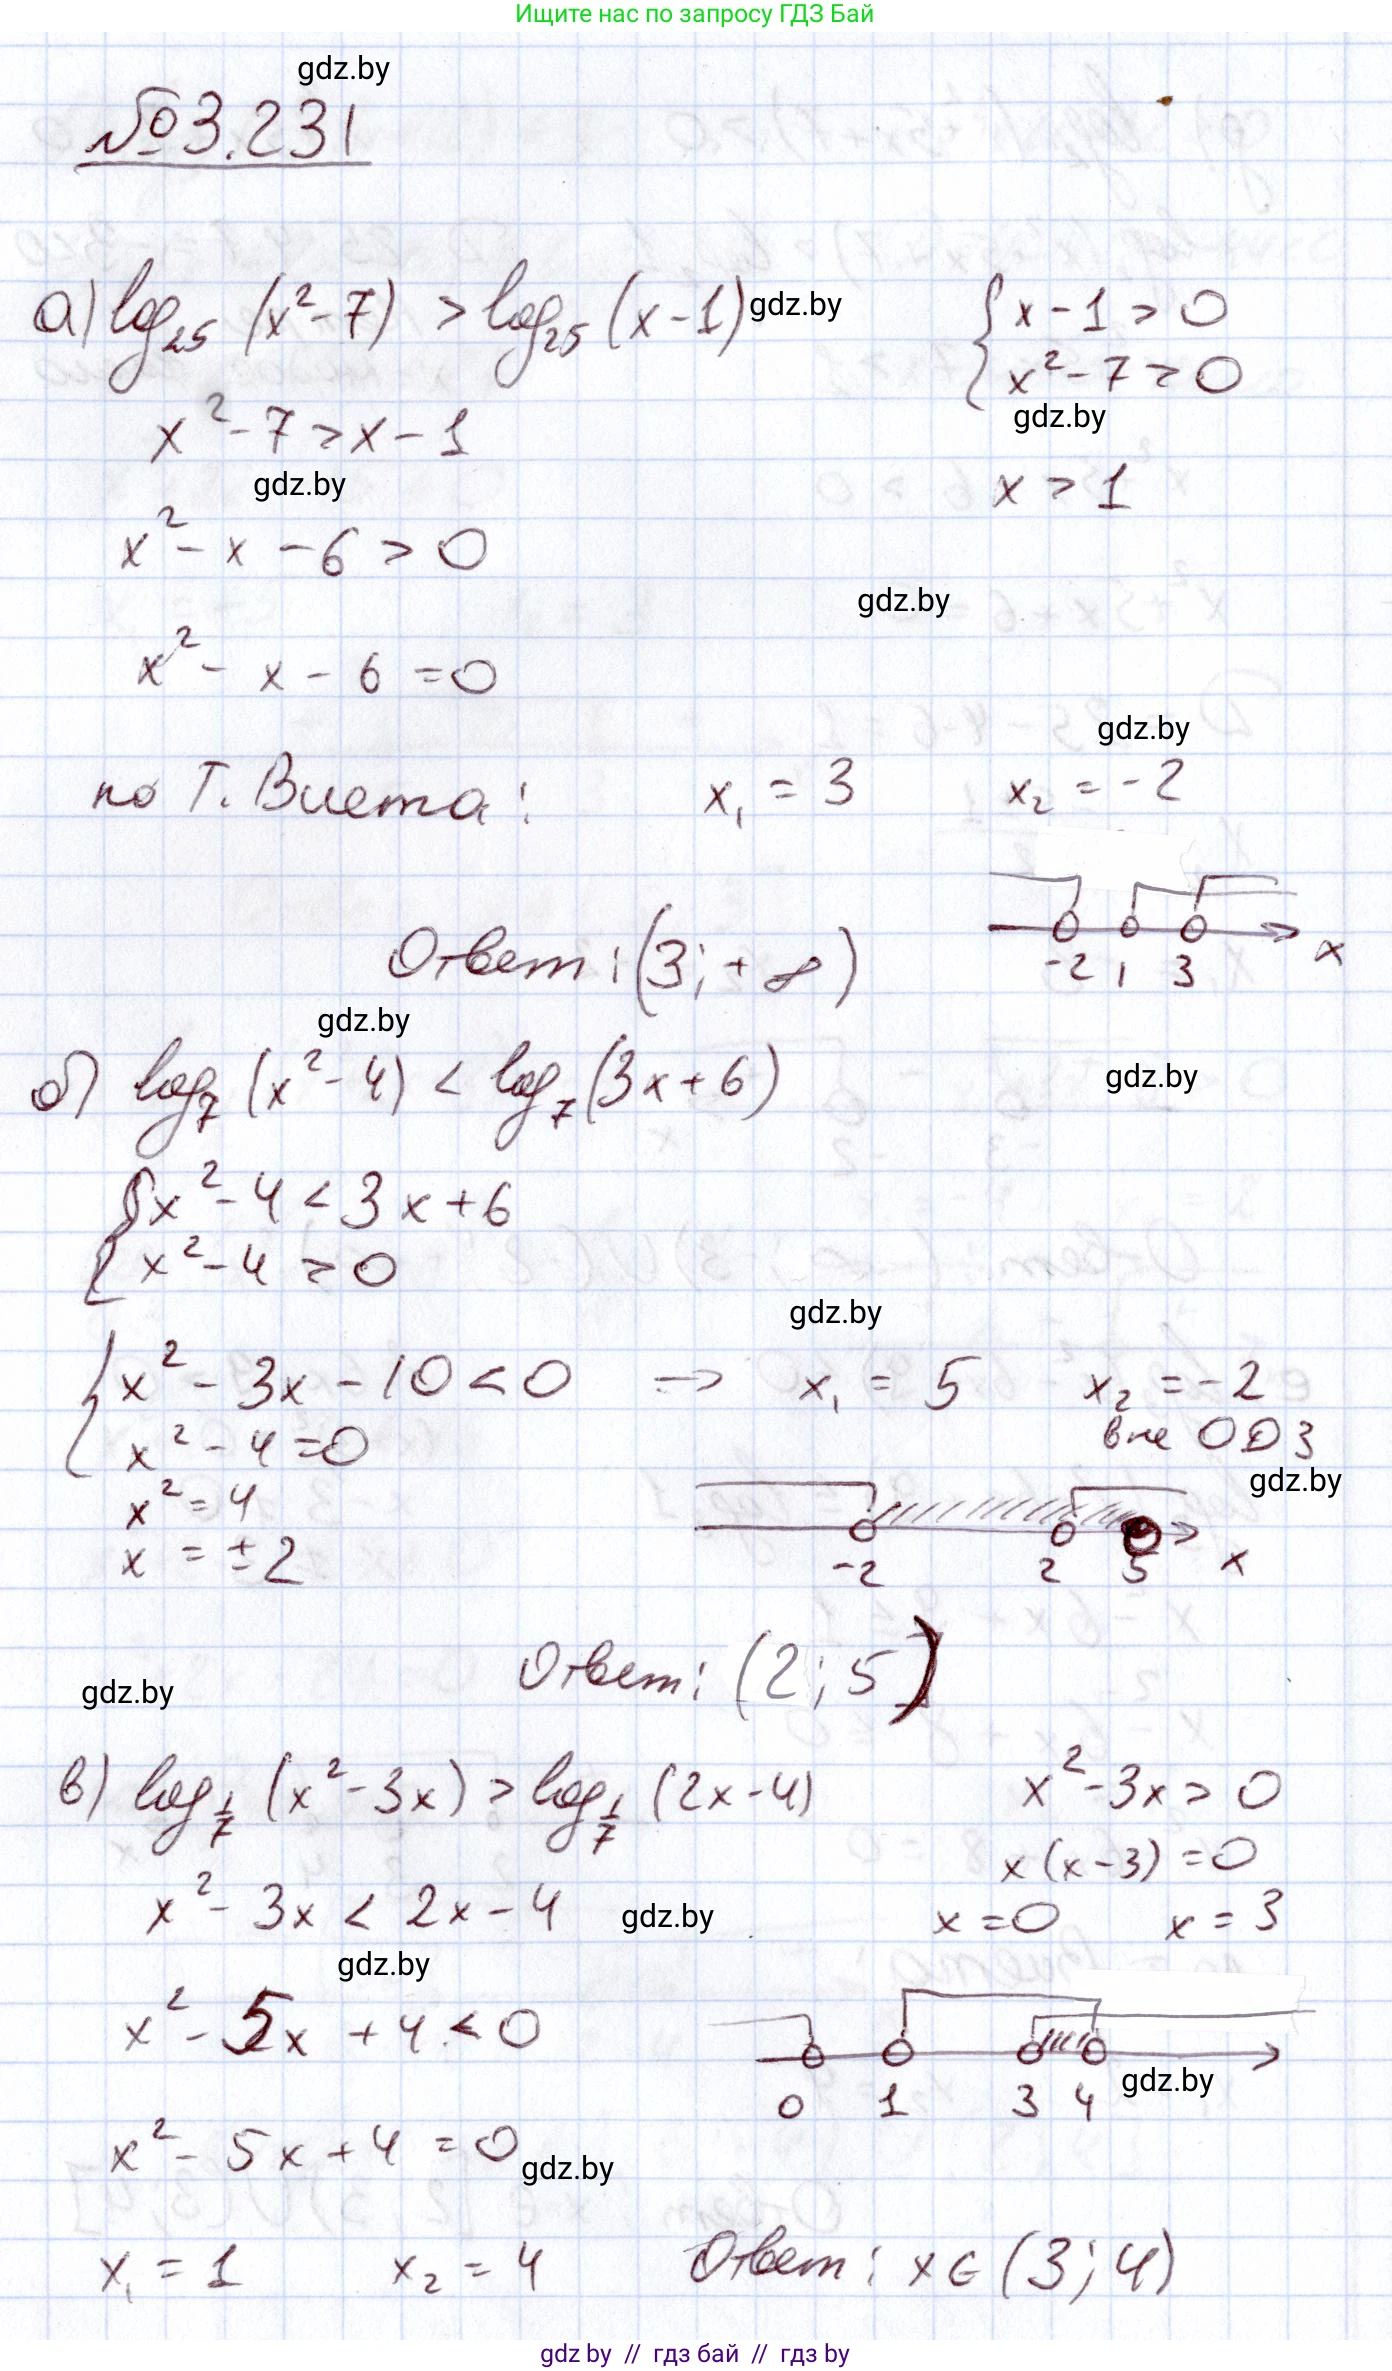 Ищите нас по запросу ГДЗ Бай
gdz.by
№3.231
а) log₂₅ (x² - 7) > log₂₅ (x - 1) gdz.by
{ x - 1 > 0
x² - 7 > 0
gdz.by
x² - 7 > x - 1
gdz.by
x > 1
x² - x - 6 > 0
gdz.by
x² - x - 6 = 0
gdz.by
по Т. Виета: x₁ = 3 x₂ = -2
-2 1 3 x
Ответ: (3; +∞)
gdz.by
б) log₇ (x² - 4) < log₇ (3x + 6)
gdz.by
{ x² - 4 < 3x + 6
x² - 4 > 0
gdz.by
{ x² - 3x - 10 < 0 → x₁ = 5 x₂ = -2
x² - 4 = 0 вне ОДЗ
gdz.by
x² = 4
x = ±2
-2 2 5 x
Ответ: (2; 5)
gdz.by
в) log 1/7 (x² - 3x) > log 1/7 (2x - 4)
x² - 3x > 0
x(x - 3) = 0
x² - 3x < 2x - 4
gdz.by
x = 0 x = 3
gdz.by
x² - 5x + 4 < 0
0 1 3 4
gdz.by
x² - 5x + 4 = 0
gdz.by
x₁ = 1 x₂ = 4 Ответ: x ∈ (3; 4)
gdz by // гдз бай // гдз by